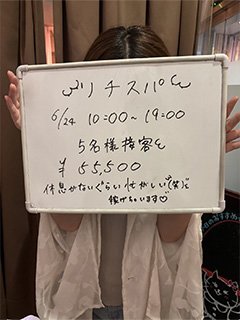 リチスパ
6/24 10:00~19:00
5名様接客を
¥55,500
休息がないぐらい忙がしい(笑)で
稼げちゃいます♡